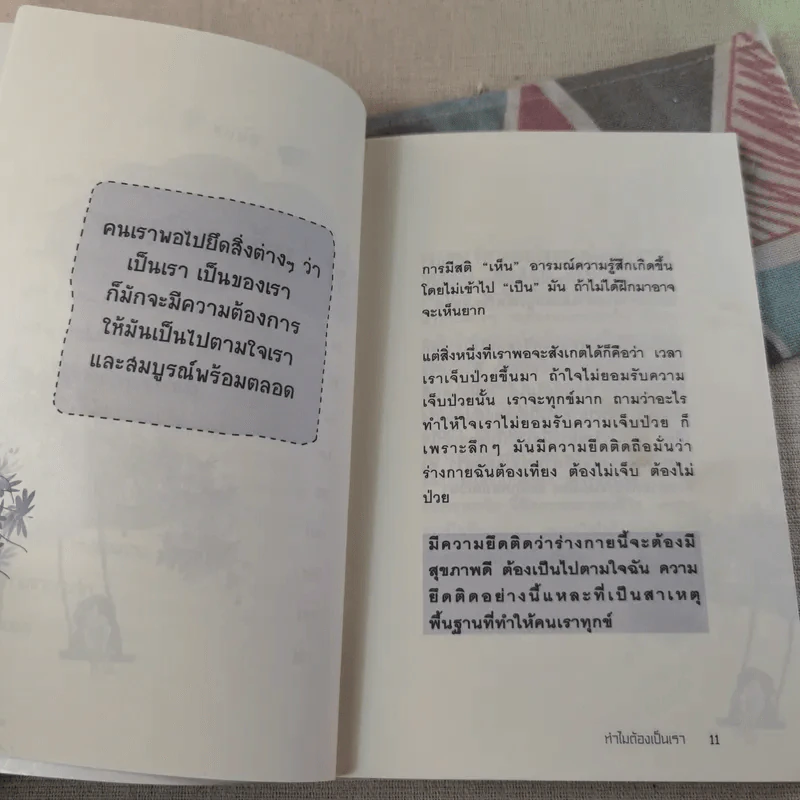 คนเราพอไปยึดสิ่งต่างๆ ว่า
เป็นเรา เป็นของเรา
ก็มักจะมีความต้องการ
ให้มันเป็นไปตามใจเรา
และสมบูรณ์พร้อมตลอด
การมีสติ “เห็น” อารมณ์ความรู้สึกเกิดขึ้น
โดยไม่เข้าไป “เป็น” มัน ถ้าไม่ได้ฝึกมาอาจ
จะเห็นยาก
แต่สิ่งหนึ่งที่เราพอจะสังเกตได้ก็คือว่า เวลา
เราเจ็บป่วยขึ้นมา ถ้าใจไม่ยอมรับความ
เจ็บป่วยนั้น เราจะทุกข์มาก ถามว่าอะไร
ทำให้ใจเราไม่ยอมรับความเจ็บป่วย ก็
เพราะลึกๆ มันมีความยึดติดถือมั่นว่า
ร่างกายฉันต้องเที่ยง ต้องไม่เจ็บ ต้องไม่
ป่วย
มีความยึดติดว่าร่างกายนี้จะต้องมี
สุขภาพดี ต้องเป็นไปตามใจฉัน ความ
ยึดติดอย่างนี้แหละที่เป็นสาเหตุ
พื้นฐานที่ทำให้คนเราทุกข์
ทำไมต้องเป็นเรา 11